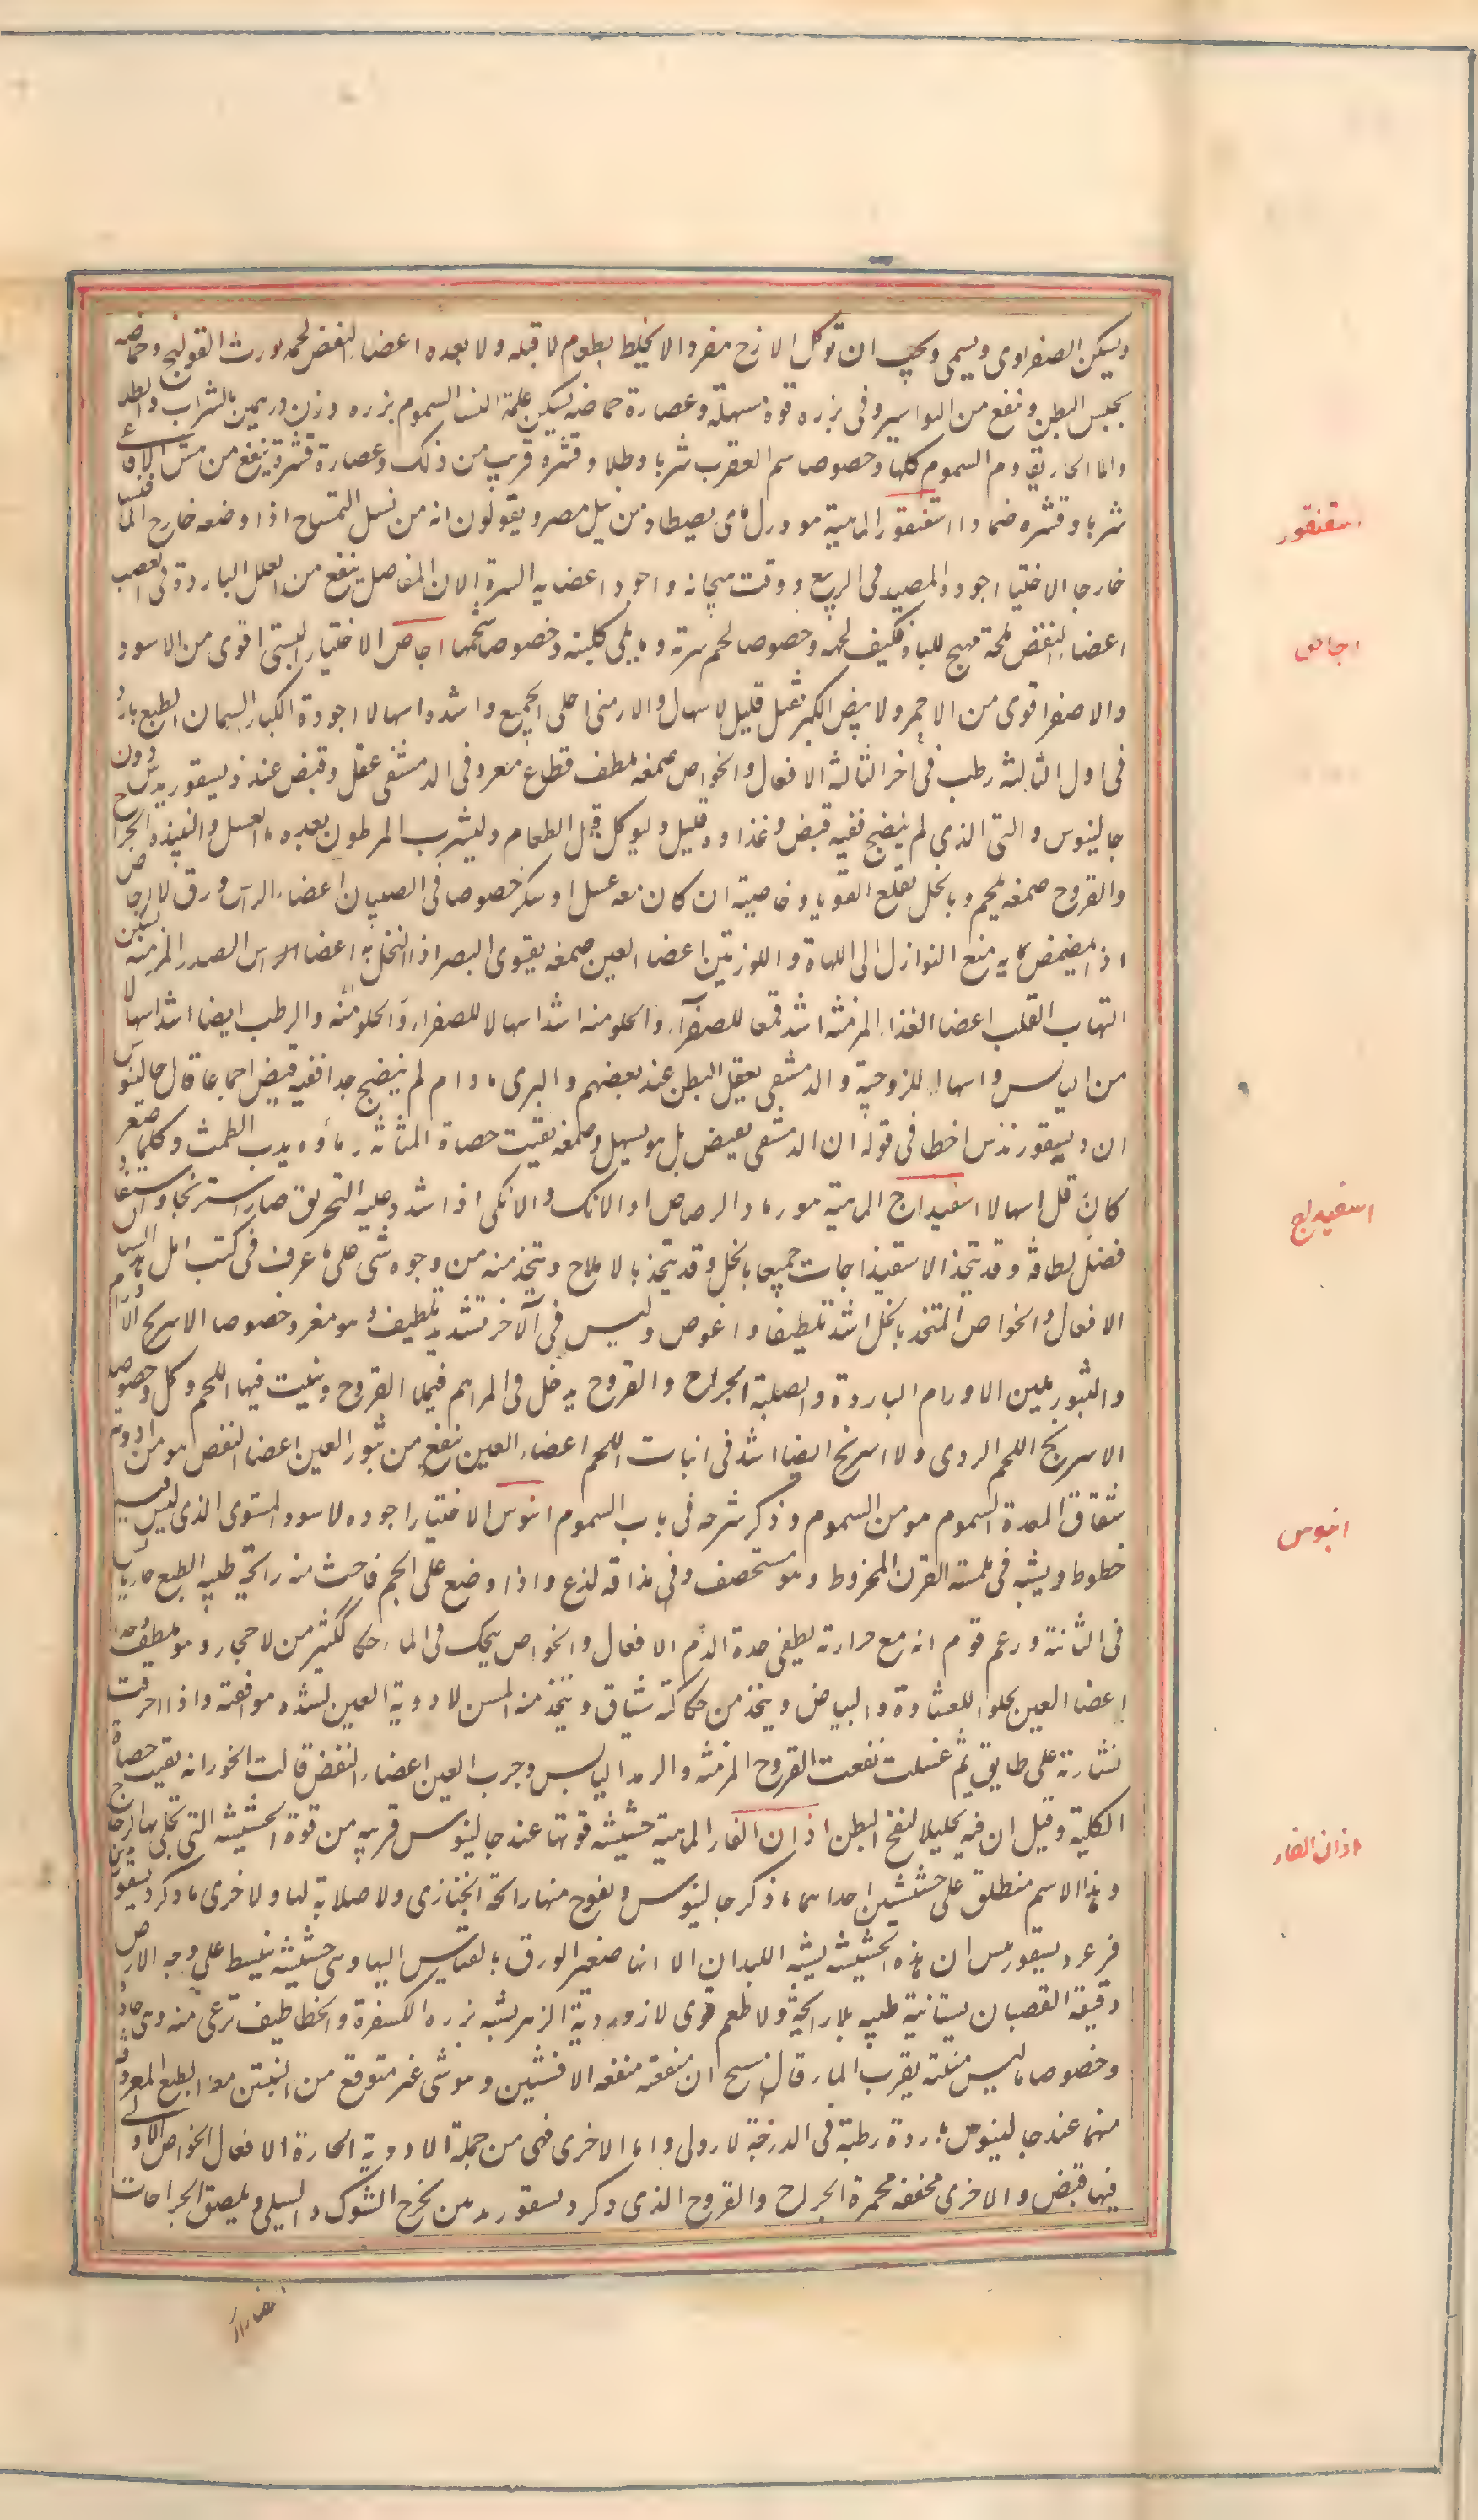 ويسكن الصفراوى ويسمى ويجب ان توكل الاترج مفردالا يخلط بطعام لا قبله ولا بعده اعضاء النفض لحمه يورث القولنج وحماضه
يحبس البطن وينفع من البواسير وفى بزره قوة مسهلة وعصارة حماضه يسكن غلمة النسا السموم بزره وزن درهمين بالشراب والطلا
والما الحار يقاوم السموم كلها وخصوصا سم العقرب شربا وطلا وقشره قريب من ذلك وعصارة قشرة ينفع من نهش الافاعى
شربا وقشره ضمادا اسقنقور الماهية هو ورل مائى يصطاد من نيل مصر ويقولون انه من نسل التمساح اذا وضعه خارج الما فنشا
خارجا الاختيا اجوده المصيد فى الربيع ووقت هيجانه واجود اعضايه السرة الات المفاصل ينفع من العلل الباردة فى العصب
اعضاء النفض ملحه مهيج للباه فكيف لحمه وخصوصا لحم سرته وما يلى كليته وخصوصا شحمها اجاص الاختيار البستى اقوى من الاسود
والاصفر اقوى من الاحمر ولابيض الكبر ثقيل قليل لاسهال والارمنى احلى الجميع واشده اسهالا اجودة الكبار السمان الطبع بارد
فى اول الثالثة رطب فى اخر الثالثة الافعال والخواص صمغه ملطف قطاع مغر وفى الدمشقى عقل وقبض عند ذيسقوريدس دون
جالينوس والتى الذى لم ينضج ففيه قبض وغذاوه قليل وليوكل قبل الطعام وليشرب المرطون بعده ماء العسل والنبيذ الجراح
والقروح صمغه يلحم وبالخل يقلع القوبا وخاصية ان كان معه عسل اوسكر خصوصا فى الصبيان اعضاء الراس ورق لا اجاص
اذ المضمض بمايه منع النوازل الى اللهاة واللوزتين اعضا العين صمغه يقوى البصر اذا اكتحل به اعضا الراس الصدر المزمنه يسكن
التهاب القلب اعضا الغذاء المزمنه اشد قمعا للصفراء والحلو منه اشد اسهالا للصفراء والحلو منه والرطب ايضا اشد اسهالا
من اليابس واسهال للزوجيه والدمشقى يعقل البطن عند بعضهم والبرى مادام لم ينضج جدا ففيه قبض اجماعا قال جالينوس
ان ديسقوريدس اخطا فى قوله ان الدمشقى يقبض بل هو يسهل وصمغه يفتت حصاة المثانه وماؤه يدر الطمث وكلما صغر
كان اقل اسهالا اسفيداج الماهية هو رماد الرصاص او الانك والانكى اذا اشد وعليه التحريق صار اسرنجا واستفا
فضل لطافة وقد يتخذ الاسفيذاجات جميعا بالخل وقد يتخذ بالاملاح ويتخذ منه من وجوه شتى على ما عرف فى كتب اهل هذا
الافعال والخواص المتخذ بالخل اشد تلطيفا واغوص وليس فى الآخر تشديد تلطيف وهو مغر وخصوصا الاسرنج الاورام
والبثور يلين الاورام الباردة والصلبة الجراح والقروح يدخل فى المراهم فيملا القروح وينبت فيها اللحم وكل وخصوصا
الاسرنج اللحم الردى ولا اسرنج ايضا اشد فى انبات اللحم اعضاء العين ينفع من بثور العين اعضا النفض هو من ادوية
شقاق المقعدة السموم هو من السموم وذكر شرحه فى باب السموم ابنوس الاختيار اجوده لاسود المستوى الذى ليس فيه
خطوط ويشبه فى ملمسه القرن المخروط وهو مستحصف وفى مذاقه لذع واذا وضع على الجمر فاحت منه رائحة طيبه الطبع حار يابس
فى الثانية وزعم قوم انه مع حرارته يطفى حدة الدم الافعال والخواص يحك فى الماء حكا ككثير من لاحجار وهو ملطف جدا
اعضا العين يجلو للغشاوة والبياض ويتخذ من حكاكته شياف ويتخذ منه المسن لادوية العين لشده موافقته واذا احرقت
نشارته على طابق ثم غسلت نفعت القروح المزمنه والرمد اليابس وجرب العين اعضاء النفض قالت الخوز انه يفتت حصاة
الكلية وقيل ان فيه تحليلا لنفخ البطن اذان الفار الماهية حشيشه قوتها عند جالينوس قريبه من قوة الحشيشه التى تجلى بها الزجاج
وهذا الاسم منطلق على حشيشين احداهما ما ذكر جالينوس ويفوح منها رائحة الخبازى ولا صلابة لها ولاخرى ما ذكر ديسقوريدس
فزعم ديسقوريدس ان هذه الحشيشه يشبه اللبلاب الا انها صغير الورق بالقياس اليها وهى حشيشه ينبسط على وجه الارض
دقيقة القضبان بستانية طيبه بلا رائحة ولا طعم قوى لازوردية الزهر يشبه بزره الكسفرة والخطاطيف ترعى منه وهى حادة
وخصوصا ما ليس منبته بقرب الماء قال مسيح ان منفعته منفعه الافسنتين وهو شى غير متوقع من النبتين معا الطبع المعروف
منهما عند جالينوس باردة رطبة فى الدرجة لاولى واما الاخرى فهى من جملة الادوية الحارة الافعال الخواص الاولى
فيها قبض والاخرى مجففه محمرة الجراح والقروح الذى ذكر ديسقوريدس يخرج الشوك والسلى ويلصق الجراحات
اسقنقور
اجاص
اسفيداج
ابنوس
اذان الفار